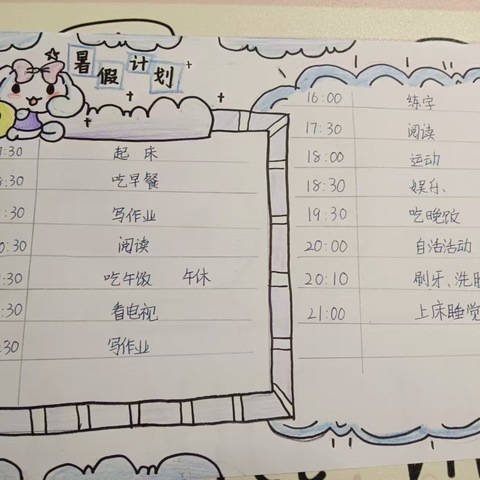 暑假计划
:30 起床
:30 吃早餐
:30 写作业
0:30 阅读
:30 吃午饭 午休
:30 看电视
:30 写作业
16:00 练字
17:30 阅读
18:00 运动
18:30 娱乐、
19:30 吃晚饭
20:00 自活活动
20:10 刷牙、洗脸
21:00 上床睡觉